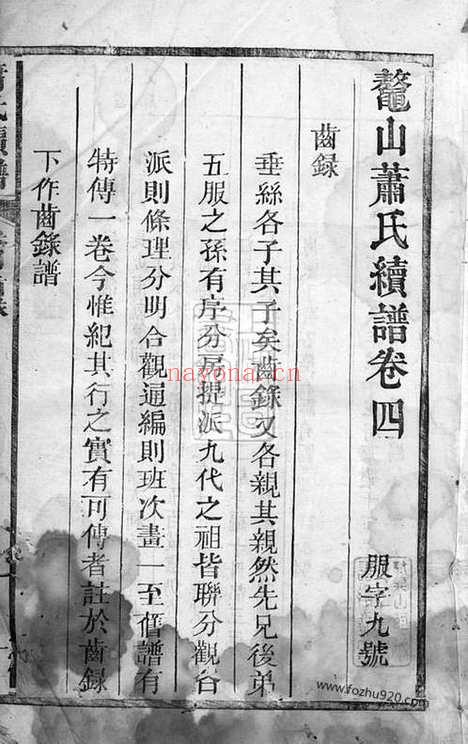 鼇山蕭氏續譜卷四
服字九號
齒録
垂絲各子其子矣齒錄又各親其親然先兄後弟
五服之孫有序分房提派九代之祖皆聯分觀各
派則條理分明合觀通編則班次畫一至舊譜有
特傳一卷今惟紀其行之實有可傳者註於齒錄
下作齒錄譜
nayona.cn
www.fozhu920.com